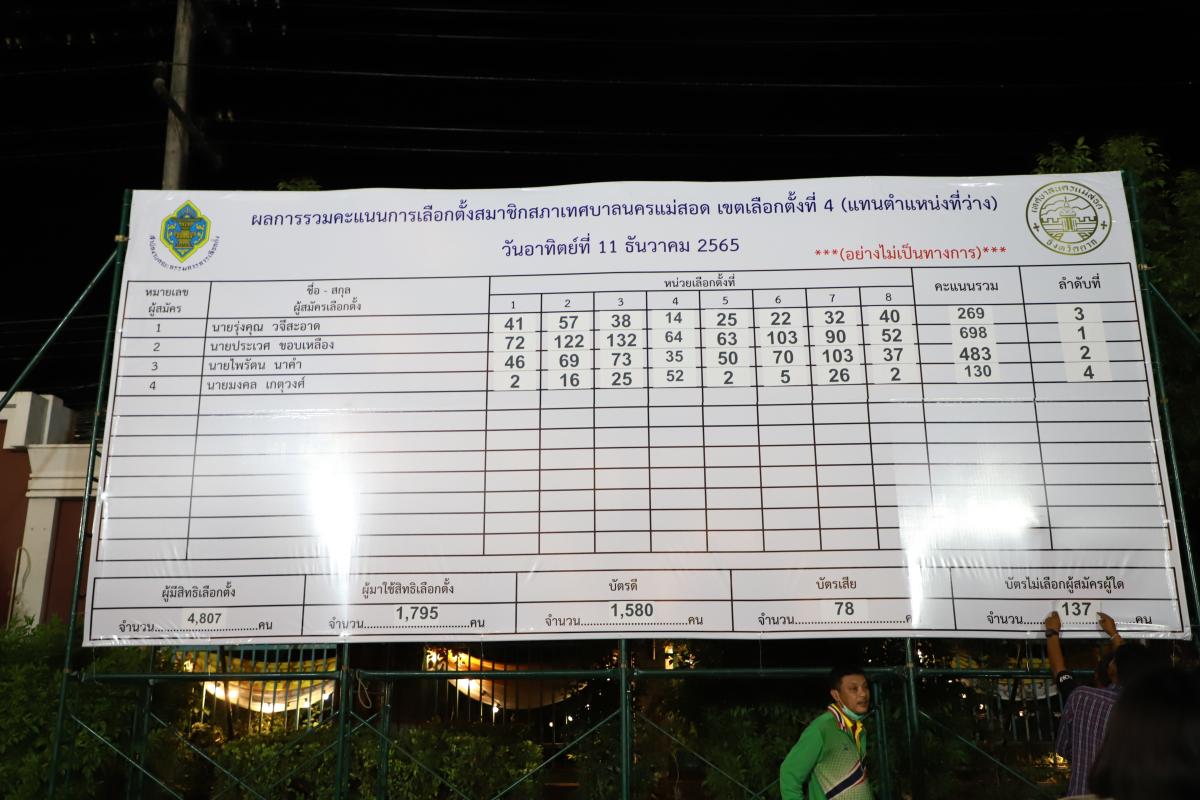 ผลการรวมคะแนนการเลือกตั้งสมาชิกสภาเทศบาลนครแม่สอด เขตเลือกตั้งที่ 4 (แทนตำแหน่งที่ว่าง)
วันอาทิตย์ที่ 11 ธันวาคม 2565
***(อย่างไม่เป็นทางการ)***
สำนักงานคณะกรรมการการเลือกตั้ง
เทศบาลนครแม่สอด
จังหวัดตาก
หมายเลข ชื่อ - สกุล หน่วยเลือกตั้งที่ คะแนนรวม ลำดับที่
ผู้สมัคร ผู้สมัครเลือกตั้ง 1 2 3 4 5 6 7 8
1 นายรุ่งคุณ วจีสะอาด 41 57 38 14 25 22 32 40 269 3
2 นายประเวศ ขอบเหลือง 72 122 132 64 63 103 90 52 698 1
3 นายไพรัตน นาคำ 46 69 73 35 50 70 103 37 483 2
4 นายมงคล เกตุวงศ์ 2 16 25 52 2 5 26 2 130 4
ผู้มีสิทธิเลือกตั้ง ผู้มาใช้สิทธิเลือกตั้ง บัตรดี บัตรเสีย บัตรไม่เลือกผู้สมัครผู้ใด
จำนวน....4,807....คน จำนวน....1,795....คน จำนวน....1,580....คน จำนวน....78....ค จำนวน....137....คน